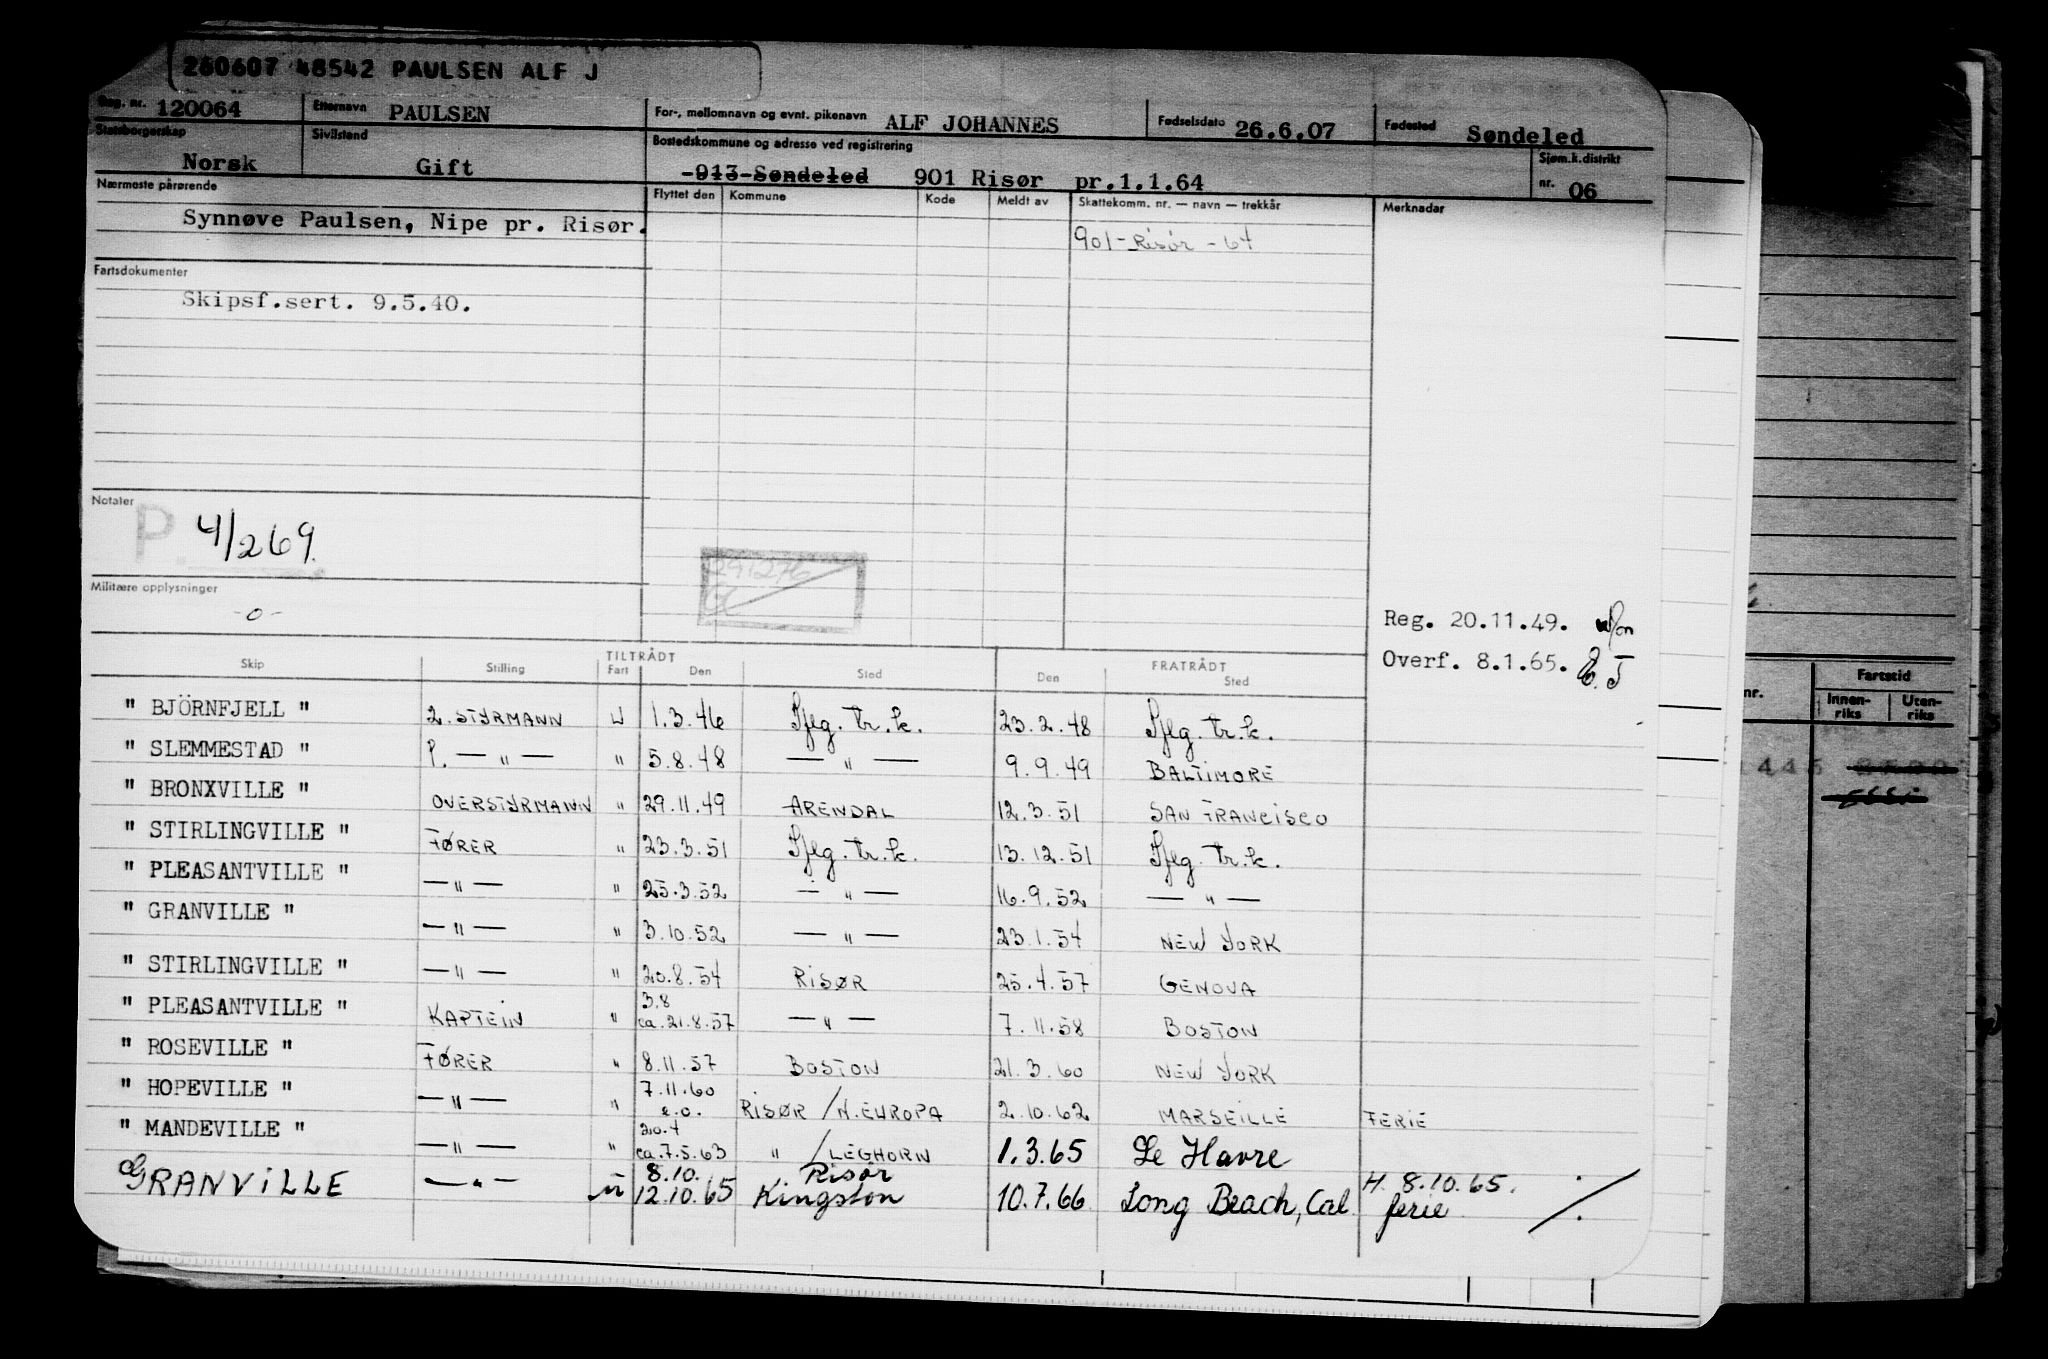 260607 48542 PAULSEN ALF J
Reg. nr. 120064 Etternavn PAULSEN For-, mellomnavn og evnt. pikenavn ALF JOHANNES Fødselsdato 26.6.07 Fødested Søndeled
Statsborgerskap Norsk Sivilstand Gift Bostedskommune og adresse ved registrering -913-Søndeled 901 Risør pr.1.1.64 Sjøm.k.distrikt nr. 06
Nærmeste pårørende Flyttet den Kommune Kode Meldt av Skattekomm. nr. — navn — trekkår Merknader
Synnøve Paulsen, Nipe pr. Risør. 901-Risør-64
Fartsdokumenter
Skipsf.sert. 9.5.40.
Notater
P. 4/269.
291276
Militære opplysninger
-o-
Reg. 20.11.49.
Overf. 8.1.65.
TILTRÅDT FRATRÅDT
Skip Stilling Fart Den Sted Den Sted
" BJÖRNFJELL " 2. STYRMANN U 1.3.46 Sjøg. tr.k. 23.2.48 Sjøg. tr.k.
" SLEMMESTAD " 1. — " — " 5.8.48 — " — 9.9.49 BALTIMORE
" BRONXVILLE " OVERSTYRMANN " 29.11.49 ARENDAL 12.3.51 SAN FRANCISCO
" STIRLINGVILLE " FØRER " 23.3.51 Sjøg. tr.k. 13.12.51 Sjøg. tr.k.
" PLEASANTVILLE " — " — " 25.3.52 — " — 16.9.52 — " —
" GRANVILLE " — " — " 3.10.52 — " — 23.1.54 NEW YORK
" STIRLINGVILLE " — " — " 20.8.54 RISØR 25.4.57 GENOVA
" PLEASANTVILLE " KAPTEIN " 3.8 ca. 21.8.57 — " — 7.11.58 BOSTON
" ROSEVILLE " FØRER " 8.11.57 BOSTON 21.3.60 NEW YORK
" HOPEVILLE " — " — " 7.11.60 e.o. RISØR / N.EUROPA 2.10.62 MARSEILLE FERIE
" MANDEVILLE " — " — " 20.4 ca. 7.5.63 " / LEGHORN 1.3.65 Le Havre
GRANVILLE — " — " 8.10. 12.10.65 Risör Kingston 10.7.66 Long Beach, Cal. H. 8.10.65. ferie ·/·
nr. Fartstid
Innen-riks Uten-riks